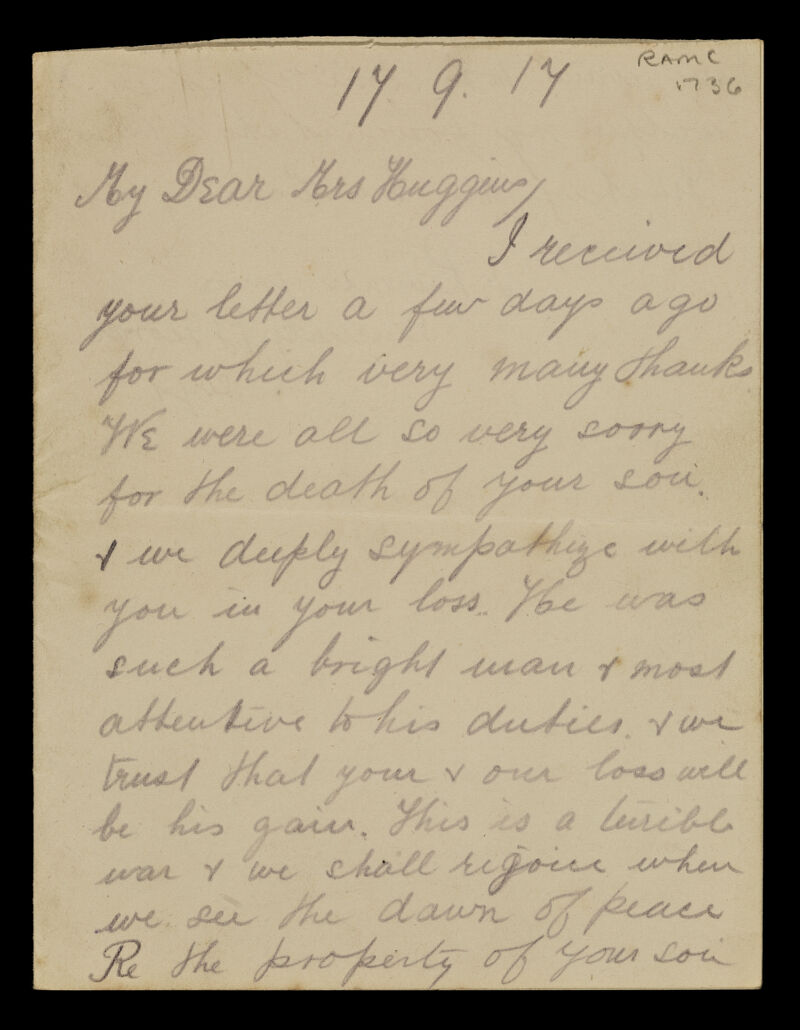 RAMC
1736
17 9. 17
My Dear Mrs Huggins,
I received
your letter a few days ago
for which very many thanks
We were all so very sorry
for the death of your son.
& we deeply sympathize with
you in your loss. He was
such a bright man & most
attentive to his duties. & we
trust that your & our loss will
be his gain. This is a terrible
war & we shall rejoice when
we see the dawn of peace
Re the property of your son